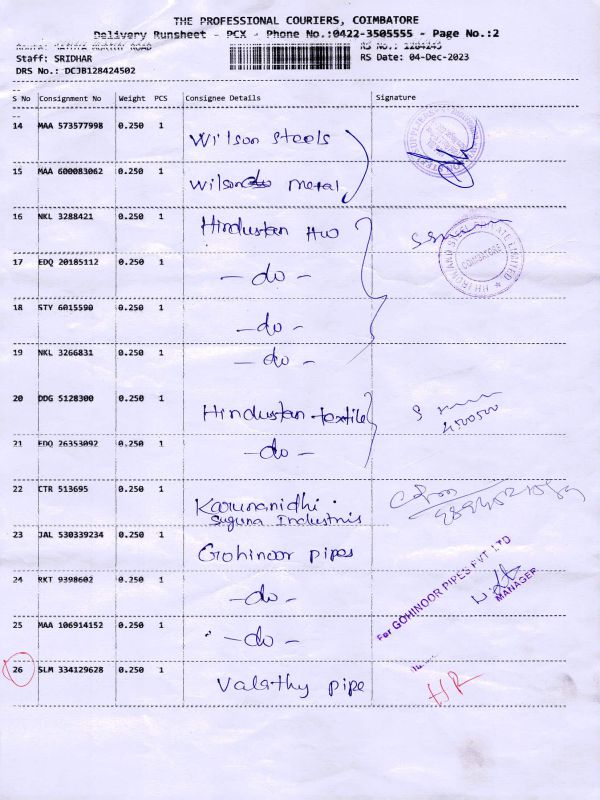 THE PROFESSIONAL COURIERS, COIMBATORE
Delivery Runsheet - PCX - Phone No.:0422-3505555 - Page No.:2
Staff: SRIDHAR
RS Date: 04-Dec-2023
DRS No.: DCJB128424502
S No Consignment No Weight PCS Consignee Details Signature
14 MAA 573577998 0.250 1 Wilson steels
15 MAA 600083062 0.250 1 Wilson metal
16 NKL 3288421 0.250 1 Hindustan HW
COIMBATORE
17 EDQ 20185112 0.250 1 -do-
18 STY 6015590 0.250 1 -do-
19 NKL 3266831 0.250 1 -do-
20 DDG 5128300 0.250 1 Hindustan textile
21 EDQ 26353092 0.250 1 -do-
22 CTR 513695 0.250 1 Karunanidhi
Suguna Industris
23 JAL 530339234 0.250 1 Gohinoor pipes
For GOHINOOR PIPES PVT LTD
MANAGER
24 RKT 9398602 0.250 1 -do-
25 MAA 106914152 0.250 1 -do-
26 SLM 334129628 0.250 1 Valathy pipe
HR